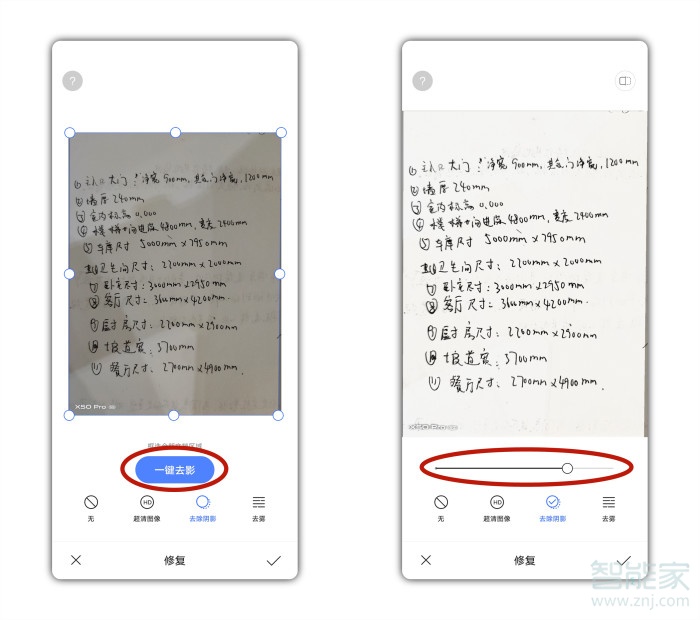 ?
① 主入口大门:净宽900mm,其余门净宽,1200mm
② 墙厚240mm
③ 室内标高0.000
④ 楼梯间进深4800mm,宽2400mm
⑤ 车库尺寸 5000mm×7950mm
卫生间尺寸:2700mm×2000mm
⑦ 卧室尺寸:3000mm×2950mm
⑧ 客厅尺寸:3600mm×4200mm.
⑨ 厨房尺寸:2200mm×2900mm
坡道宽:3700mm
⑪ 餐厅尺寸:2700mm×4900mm.
X50 Pro
一键去影
无
超清图像
去除阴影
去雾
修复
?
① 主入口大门:净宽900mm,其余门净宽,1200mm
② 墙厚240mm
③ 室内标高0.000
④ 楼梯间进深4800mm,宽2400mm
⑤ 车库尺寸 5000mm×7950mm
卫生间尺寸:2700mm×2000mm
⑦ 卧室尺寸:3000mm×2950mm
⑧ 客厅尺寸:3600mm×4200mm.
⑨ 厨房尺寸:2200mm×2900mm
坡道宽:3700mm
⑪ 餐厅尺寸:2700mm×4900mm.
X50 Pro
无
超清图像
去除阴影
去雾
修复
智能家
www.znj.com